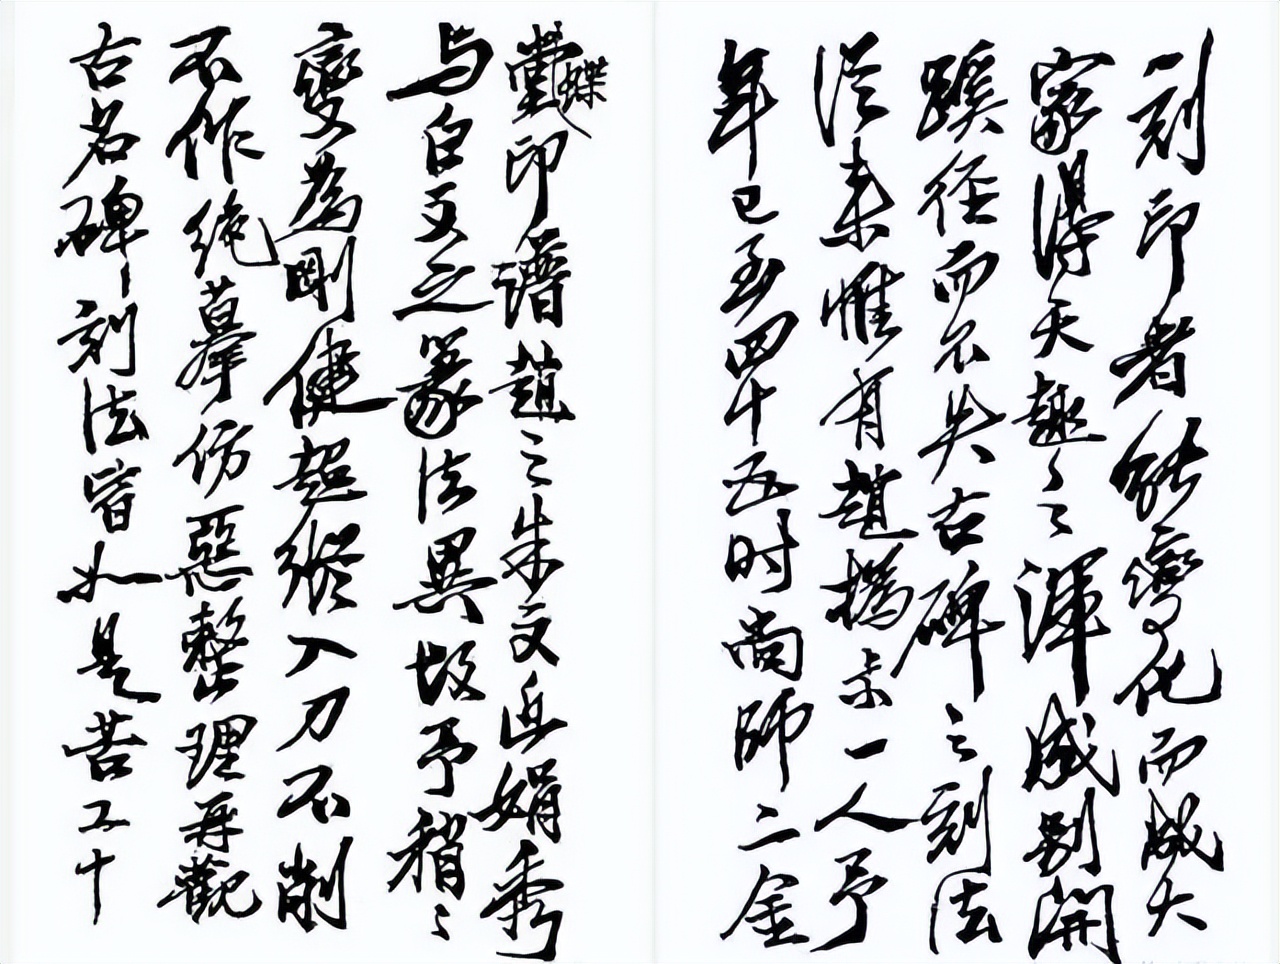 刻印者能變化而成大
家得天趣之渾成别開
蹊径而不失古碑之刻法
從来惟有趙撝叔一人予
年已至四十五时尚師二金
蝶堂印譜趙之朱文近娟秀
与白文之篆法異故予稍〻
變為剛健超縱入刀不削
不作绝摹仿惡整理再觀
古名碑刻法皆如是苦工十